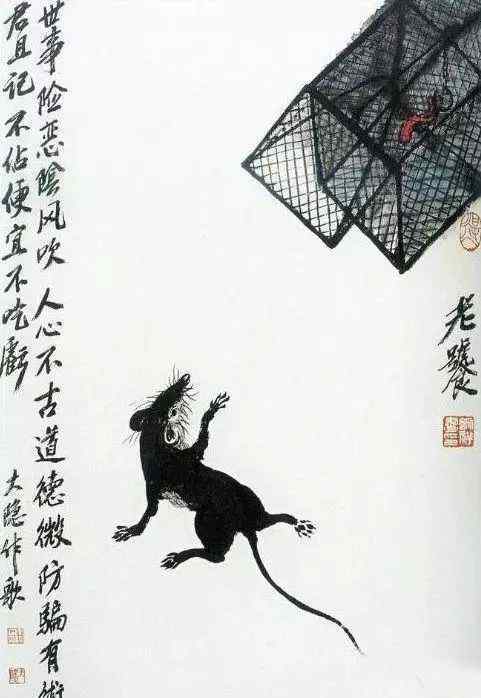 老饕
世事险恶陰风吹 人心不古道德微 防騙有術
君且记 不佔便宜不吃虧
大隐作歌